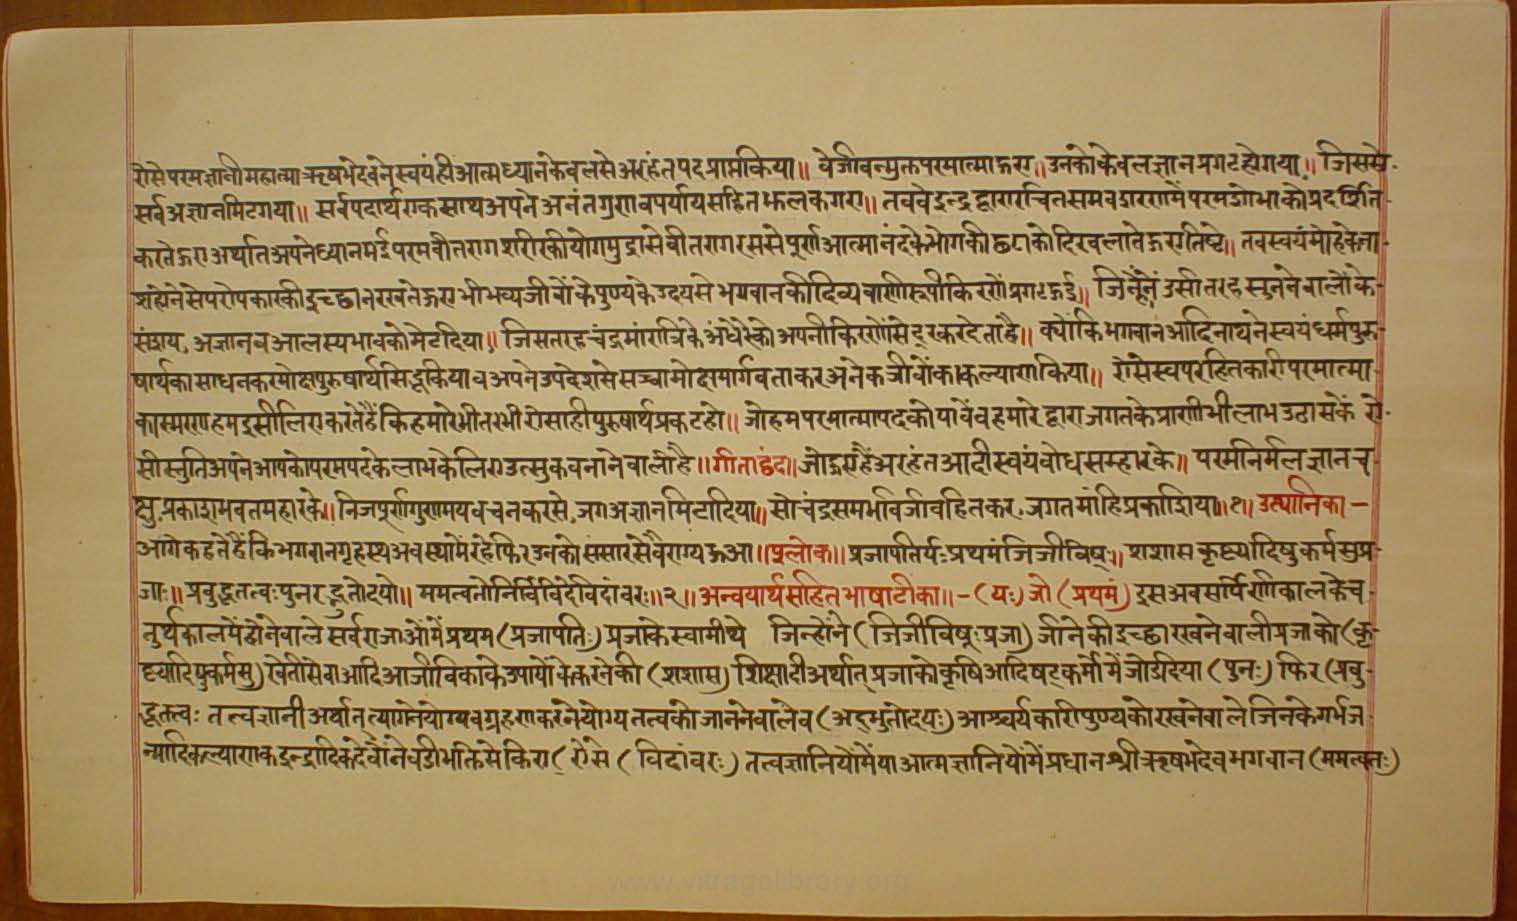 ऐसे परम ज्ञानी महात्मा ऋषभदेवने स्वयंही आत्मध्यानके बलसे अरहंत पद प्राप्त किया॥ वे जीवन्मुक्त परमात्मा हुए॥ उनको केवलज्ञान प्रगट होगया॥ जिससे-
सर्व अज्ञान मिटगया॥ सर्वपदार्थ एकसाथ अपने अनंतगुण व पर्याय सहित झलक गए॥ तब वे इन्द्र द्वारा रचित समवशरणमें परम शोभाको प्रदर्शित-
करते हुए अर्थात अपने ध्यानमई परम वीतराग शरीरकी योग मुद्रासे वीतराग रससे पूर्ण आत्मानंदके भोगकी छटाको दिखलाते हुए तिष्ठे॥ तब स्वयं मोहके ना-
शहोनेसे परोपकारकी इच्छा न रखते हुए भी भव्यजीवोंके पुण्यके उदयसे भगवानकी दिव्यवाणीरूपी किरणें प्रगट हुई॥ जिनूंनें उसीतरह सुननेवालोंके-
संशय, अज्ञान व आलस्यभावको मेट दिया॥ जिसतरह चंद्रमां रात्रिके अंधेरेको अपनी किरणोंसे दूर कर देता है॥ क्योंकि भगवान आदिनाथने स्वयं धर्म पुरु-
षार्थका साधन कर मोक्ष पुरुषार्थ सिद्ध किया व अपने उपदेशसे सच्चा मोक्षमार्ग बताकर अनेक जीवोंका कल्याण किया॥ ऐसे स्वपर हितकारी परमात्मा-
का स्मरण हम इसीलिए करते हैं कि हमारे भीतर भी ऐसाही पुरुषार्थ प्रकट हो॥ जो हम परमात्मा पदको पावें व हमारे द्वारा जगतके प्राणी भी लाभ उठा सकें ऐ-
सी स्तुति अपने आपको परमपदके लाभके लिए उत्सुक बनाने वाली है॥ गीता छंद॥ जो हुए हैं अरहंत आदी स्वयं बोध सम्हारके॥ परम निर्मल ज्ञान च-
क्षु प्रकाश भवतम हारके॥ निज पूर्ण गुणमय वचन करसे, जग अज्ञान मिटा दिया॥ सो चंद्र सम भवि जीव हितकर, जगत मांहि प्रकाशिया॥१॥ उत्थानिका—
आगे कहते हैं कि भगवान गृहस्थ अवस्थामें रहे फिर उनको संसारसे वैराग्य हुआ॥ श्लोक॥ प्रजापतिर्यः प्रथमं जिजीविषूः॥ शशास कृष्यादिषु कर्मसु प्र-
जाः॥ प्रबुद्धतत्वः पुनरद्भुतोदयो॥ ममत्वतो निर्विविदे विदांवरः॥२॥ अन्वयार्थ सहित भाषाटीका॥- (यः) जो (प्रथमं) इस अवसर्पिणी कालके च-
तुर्थकालमें होनेवाले सर्व राजाओंमें प्रथम (प्रजापतिः) प्रजाके स्वामी थे जिन्होंने (जिजीविषूः प्रजा) जीनेकी इच्छा रखनेवाली प्रजाको (कृ-
ष्यादिषु कर्मसु) खेती सेवा आदि आजीविकाके उपायोंके करनेकी (शशास) शिक्षा दी अर्थात् प्रजाको कृषि आदि षट्कर्मोंमें जोड दिया (पुनः) फिर (प्रबु-
द्धतत्त्वः तत्त्वज्ञानी अर्थात् त्यागने योग्य व ग्रहण करने योग्य तत्वको जाननेवाले व (अद्भुतोदयः) आश्चर्यकारी पुण्यको रखनेवाले जिनके गर्भ ज-
न्मादि कल्याणक इन्द्रादिक देवोंने बडी भक्तिसे किए (ऐसे (विदांवरः) तत्त्वज्ञानियोंमें या आत्मज्ञानियोंमें प्रधान श्री ऋषभदेव भगवान (ममत्वतः)
www.vitragdlibrary.org